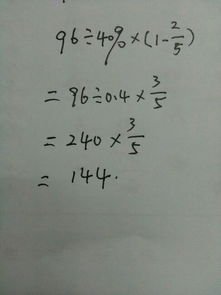 96÷40%×(1-2/5)
=96÷0.4×3/5
=240×3/5
=144.